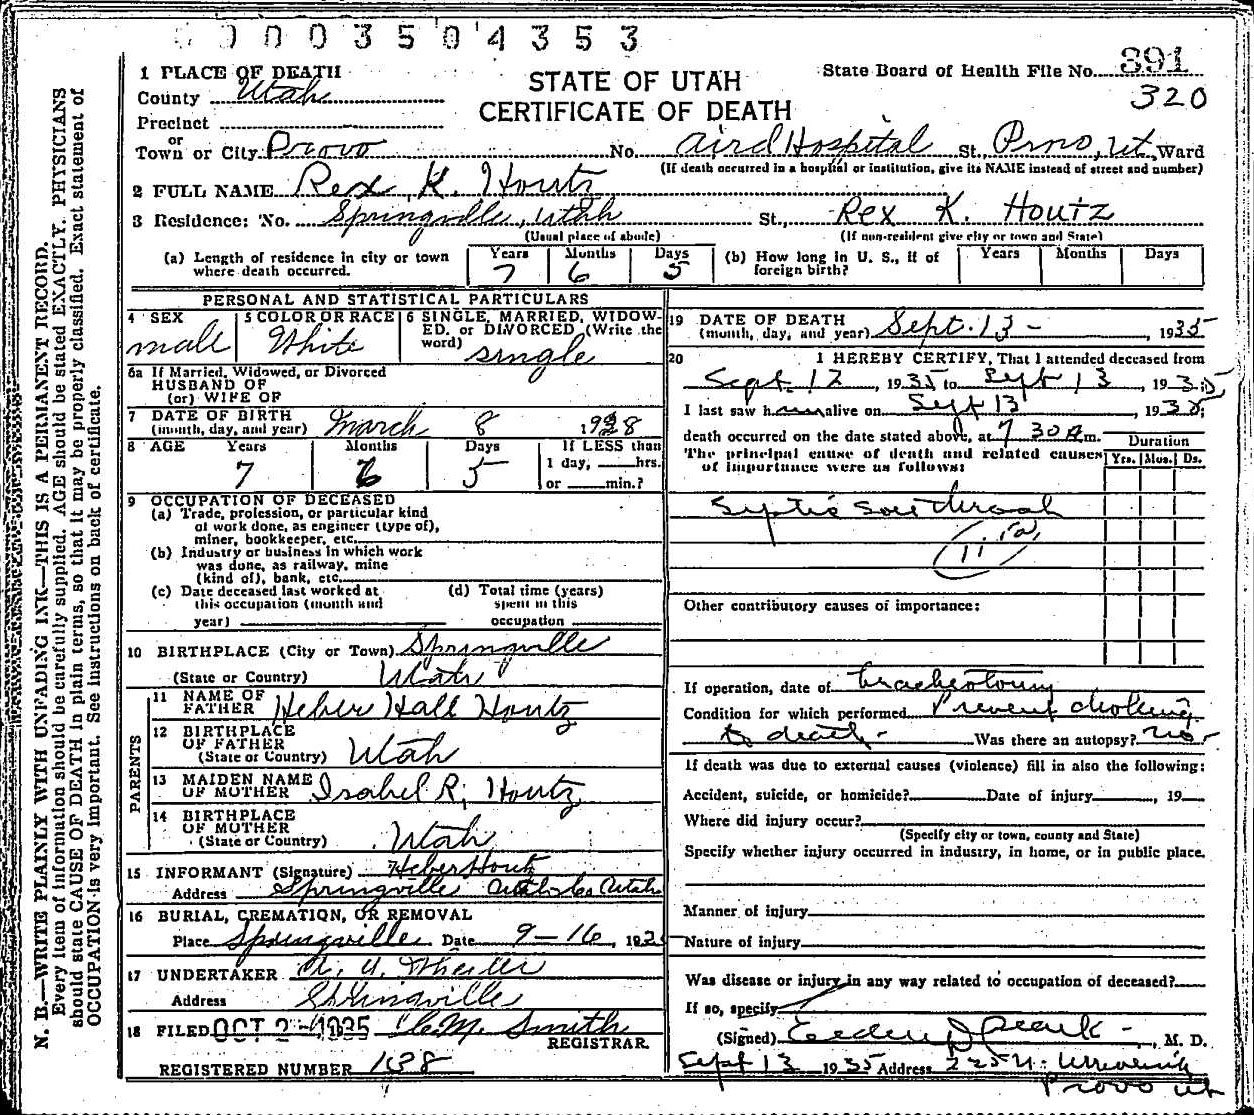 0003504353
1 PLACE OF DEATH
County Utah
Precinct
or
Town or City Provo
STATE OF UTAH
CERTIFICATE OF DEATH
State Board of Health File No. 891
320
No. Aird Hospital St. Provo, Ut. Ward
(If death occurred in a hospital or institution, give its NAME instead of street and number)
2 FULL NAME Rex K. Houtz
3 Residence: No. Springville, Utah St., Rex K. Houtz
(Usual place of abode) (If non-resident give city or town and State)
(a) Length of residence in city or town where death occurred. Years 7 Months 6 Days 5
(b) How long in U. S., if of foreign birth? Years Months Days
PERSONAL AND STATISTICAL PARTICULARS
4 SEX male
5 COLOR OR RACE White
6 SINGLE, MARRIED, WIDOWED, or DIVORCED (Write the word) single
6a If Married, Widowed, or Divorced
HUSBAND OF
(or) WIFE OF
7 DATE OF BIRTH
(month, day, and year) March 8 1928
8 AGE Years 7 Months 6 Days 5
If LESS than
1 day, hrs.
or min.?
9 OCCUPATION OF DECEASED
(a) Trade, profession, or particular kind
of work done, as engineer (type of),
miner, bookkeeper, etc.
(b) Industry or business in which work
was done, as railway, mine
(kind of), bank, etc.
(c) Date deceased last worked at
this occupation (month and
year)
(d) Total time (years)
spent in this
occupation
10 BIRTHPLACE (City or Town) Springville
(State or Country) Utah
PARENTS
11 NAME OF FATHER Heber Hall Houtz
12 BIRTHPLACE
OF FATHER
(State or Country) Utah
13 MAIDEN NAME
OF MOTHER Isabel R. Houtz
14 BIRTHPLACE
OF MOTHER
(State or Country) Utah
15 INFORMANT (Signature) Heber Houtz
Address Springville Utah
16 BURIAL, CREMATION, OR REMOVAL
Place Springville Date 9-16, 193
17 UNDERTAKER
Address Springville
18 FILED OCT 2-1935 Smith
REGISTRAR
REGISTERED NUMBER 138
19 DATE OF DEATH
(month, day, and year) Sept. 13 - 1935
20 I HEREBY CERTIFY, That I attended deceased from
Sept. 12, 1935 to Sept 13, 1935
I last saw him alive on Sept 13, 1935;
death occurred on the date stated above, at 7 30 A m.
The principal cause of death and related causes
of importance were as follows:
Duration
Yrs. Mos. Ds.
Septic sore throat
Other contributory causes of importance:
If operation, date of tracheotomy
Condition for which performed Prevent choking
to death - Was there an autopsy? no -
If death was due to external causes (violence) fill in also the following:
Accident, suicide, or homicide? Date of injury , 19
Where did injury occur?
(Specify city or town, county and State)
Specify whether injury occurred in industry, in home, or in public place.
Manner of injury
Nature of injury
Was disease or injury in any way related to occupation of deceased?
If so, specify
(Signed) , M. D.
Sept 13 1935 Address
Provo Ut
N. B.—WRITE PLAINLY WITH UNFADING INK—THIS IS A PERMANENT RECORD.
Every item of information should be carefully supplied. AGE should be stated EXACTLY. PHYSICIANS
should state CAUSE OF DEATH in plain terms, so that it may be properly classified. Exact statement of
OCCUPATION is very important. See instructions on back of certificate.